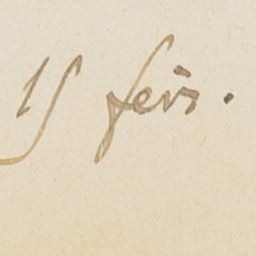 15 fevr.